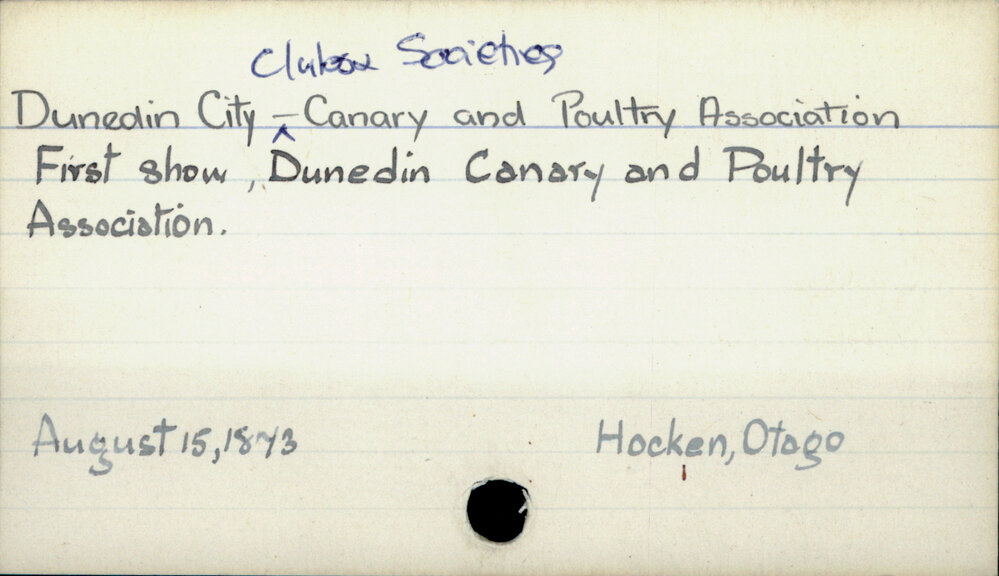 Clubs & Societies
Dunedin City - Canary and Poultry Association
First show, Dunedin Canary and Poultry
Association.
August 15, 1873 Hocken, Otago